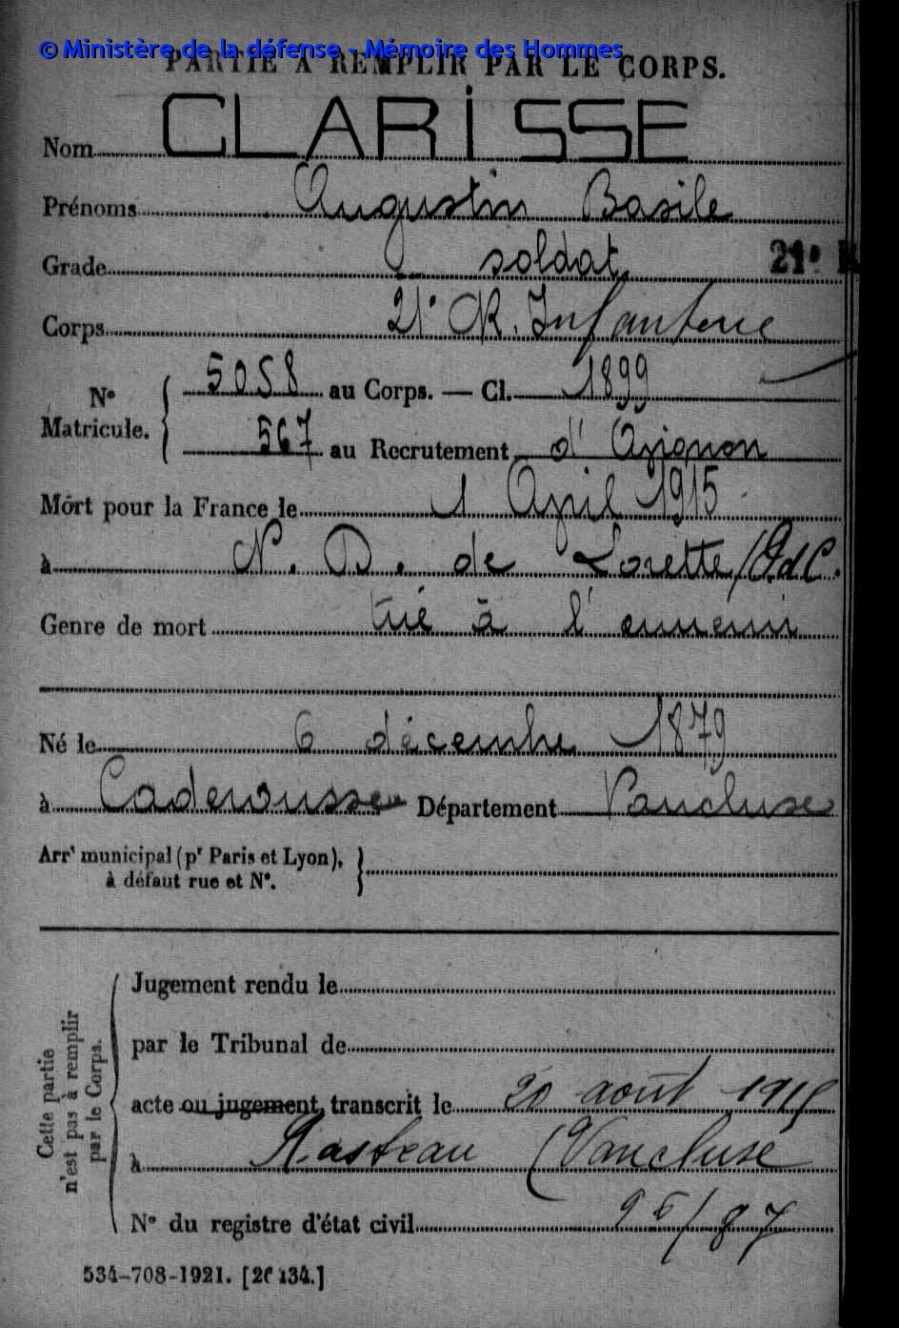 © Ministère de la défense - Mémoire des Hommes
PARTIE A REMPLIR PAR LE CORPS.
Nom CLARISSE
Prénoms Augustin Basile
Grade soldat 21e
Corps 21e R. Infanterie
N° Matricule. { 5058 au Corps. — Cl. 1899
567 au Recrutement d'Avignon
Mort pour la France le 1 Avril 1915
à N. D. de Lorette (P.d.C.
Genre de mort tué à l'ennemi
Né le 6 décembre 1879
à Caderousse Département Vaucluse
Arrt municipal (pr Paris et Lyon),
à défaut rue et N°.
Cette partie n'est pas à remplir par le Corps.
Jugement rendu le
par le Tribunal de
acte ou jugement transcrit le 20 août 1915
à Rasteau (Vaucluse
N° du registre d'état civil
534-708-1921. [26434.]